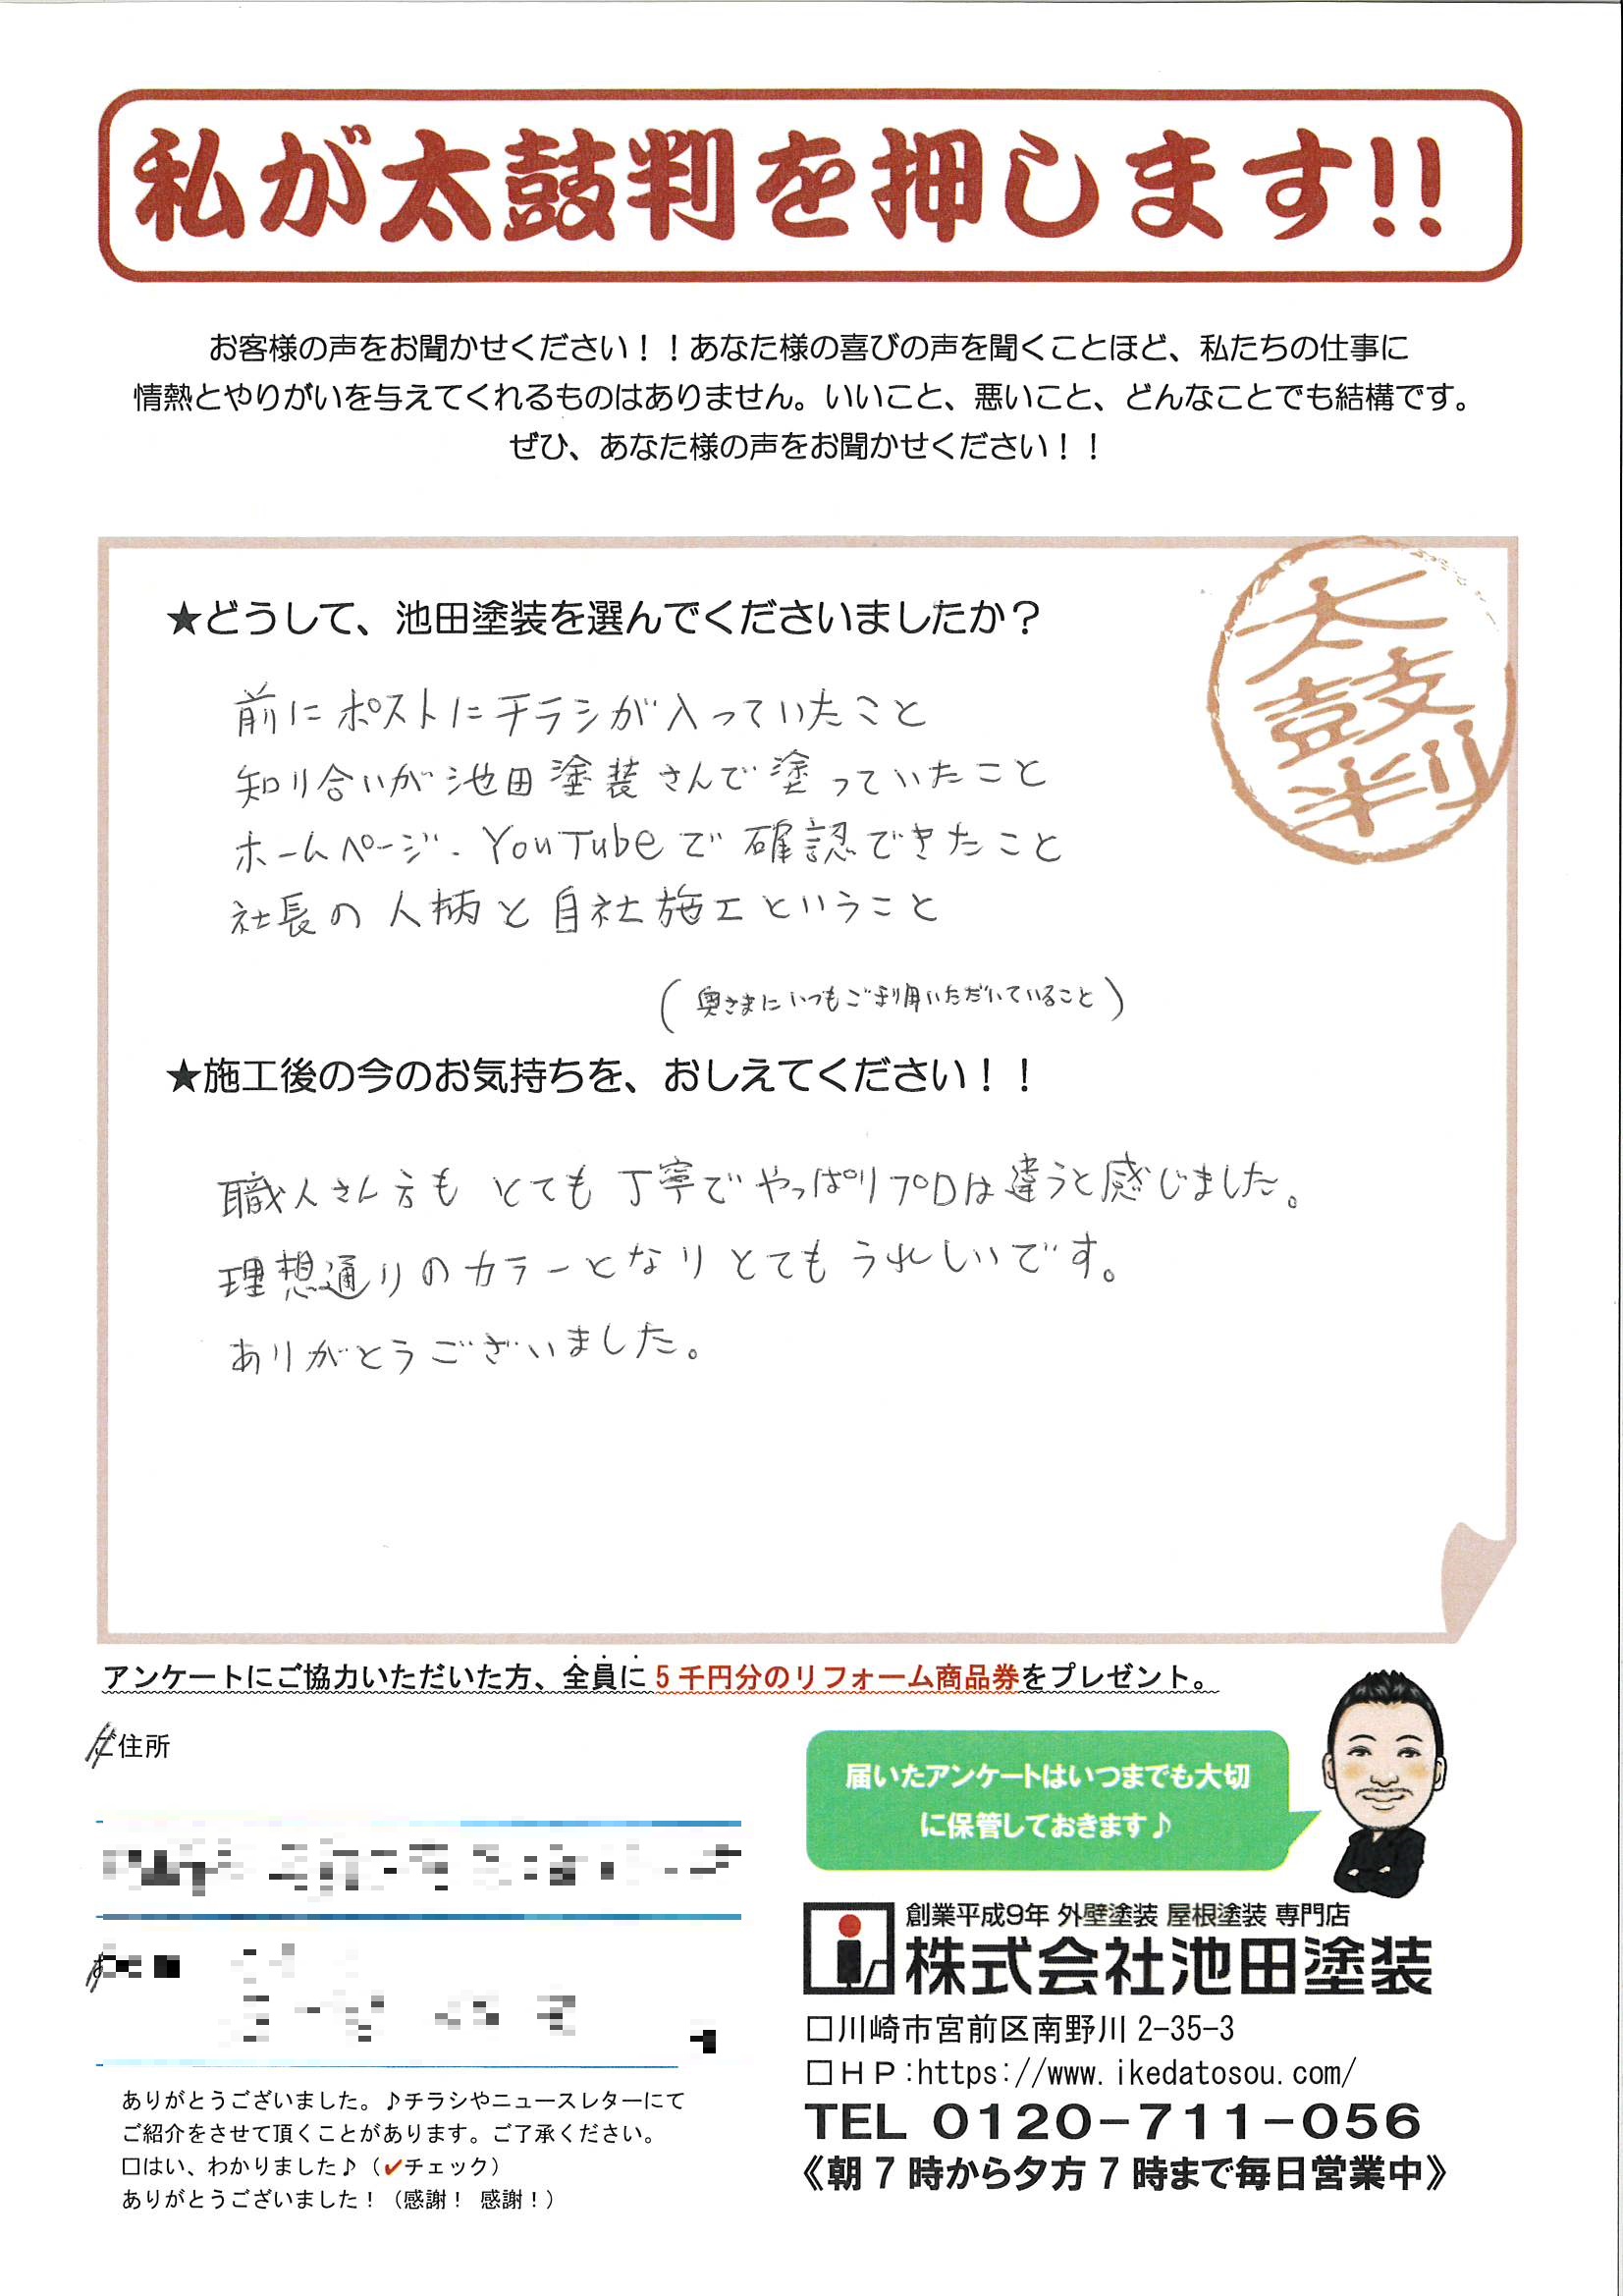 私が太鼓判を押します!!
お客様の声をお聞かせください！！あなた様の喜びの声を聞くことほど、私たちの仕事に
情熱とやりがいを与えてくれるものはありません。いいこと、悪いこと、どんなことでも結構です。
ぜひ、あなた様の声をお聞かせください！！
太鼓判
★どうして、池田塗装を選んでくださいましたか？
前にポストにチラシが入っていたこと
知り合いが池田塗装さんで塗っていたこと
ホームページ、YouTubeで確認できたこと
社長の人柄と自社施工ということ
（奥さまにいつもご利用いただいていること）
★施工後の今のお気持ちを、おしえてください！！
職人さん方もとても丁寧でやっぱりプロは違うと感じました。
理想通りのカラーとなりとてもうれしいです。
ありがとうございました。
アンケートにご協力いただいた方、全員に5千円分のリフォーム商品券をプレゼント。
ご住所
届いたアンケートはいつまでも大切
に保管しておきます♪
創業平成9年 外壁塗装 屋根塗装 専門店
株式会社池田塗装
□川崎市宮前区南野川2-35-3
□ＨＰ:https://www.ikedatosou.com/
TEL 0120-711-056
《朝7時から夕方7時まで毎日営業中》
ありがとうございました。♪チラシやニュースレターにて
ご紹介をさせて頂くことがあります。ご了承ください。
□はい、わかりました♪（✔チェック）
ありがとうございました！（感謝！ 感謝！）